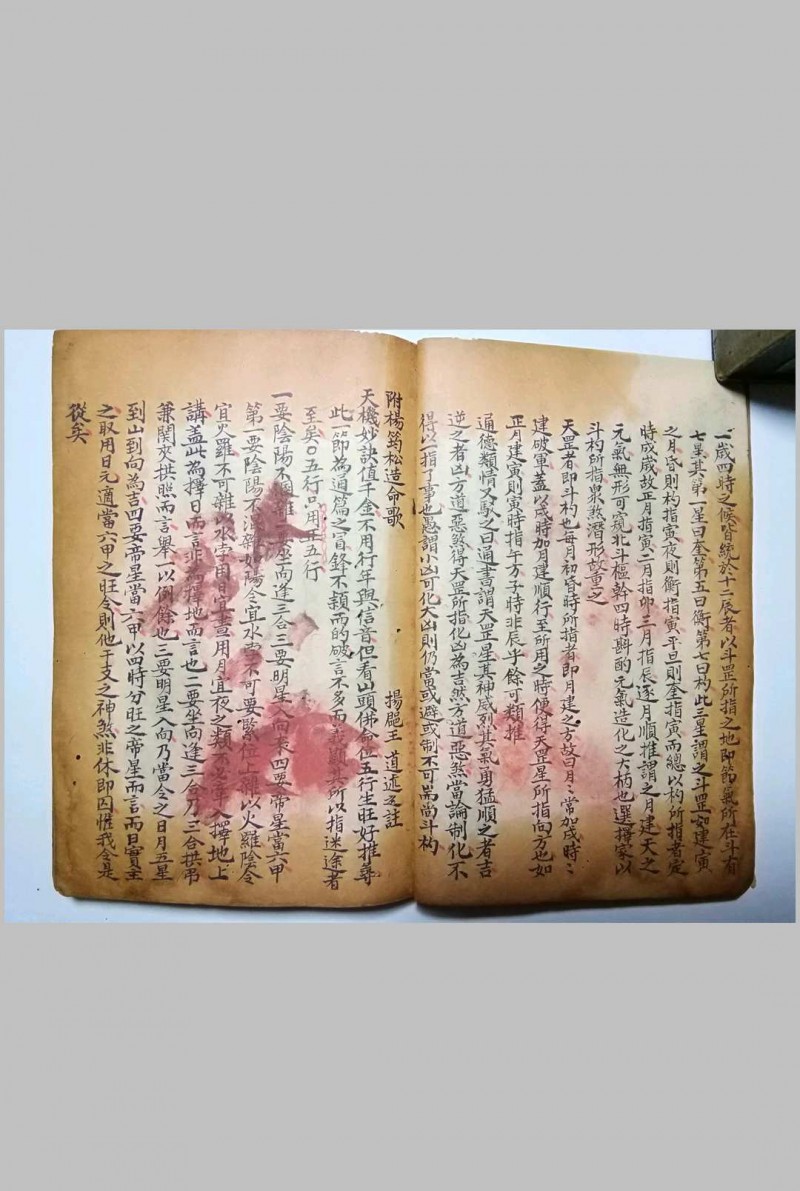 一歲四時之候皆統於十二辰者以斗罡所指之地即節氣所在斗有
七星其第一星曰奎第五曰衡第七曰杓此三星謂之斗罡如建寅
之月昏則杓指寅夜則衡指寅平旦則奎指寅而總以杓所指者定
時成歲故正月指寅二月指卯三月指辰逐月順推謂之月建天之
元氣無形可窺北斗樞幹四時斟酌元氣造化之大柄也選擇家以
斗杓所指眾煞潛形故重之
天罡者即斗杓也每月初昏時所指者即月建之方故曰月〻常加戌時〻
建破軍蓋以戌時加月建順行至所用之時便得天罡星所指向方也如
正月建寅則寅時指午方子時非辰乎餘可類推
通德類情又駁之曰通書謂天罡星其神威烈其氣勇猛順之者吉
逆之者凶方道惡煞得天罡所指化凶為吉然方道惡煞當論制化不
得以一指了事也愚謂小凶可化大凶則仍當或避或制不可耑尚斗杓
附楊筠松造命歌 楊 王道述之註
天機妙訣值千金不用行年與信音但看山頭併命位五行生旺好推尋
此一節為通篇之冒鋒不穎而的破言不多而義顯其所以指迷途者
至矣〇五行只用正五行
一要陰陽不 雜二要坐向逢三合三要明星入向來四要帝星當六甲
第一要陰陽不混雜如陽令宜水 不可要緊位上雜以火羅陰令
宜火羅不可雜以水孛用日宜晝用月宜夜之類 入擇地上
講蓋此為擇日而言非為擇地而言也二要坐向逢三合乃三合拱弔
兼關夾拱照而言舉一以例餘也三要明星入向乃當令之日月五星
到山到向為吉四要帝星當六甲以四時分旺之帝星而言而日實主
之取用日元適當六甲之旺令則他干支之神煞非休即囚惟我令是
從矣